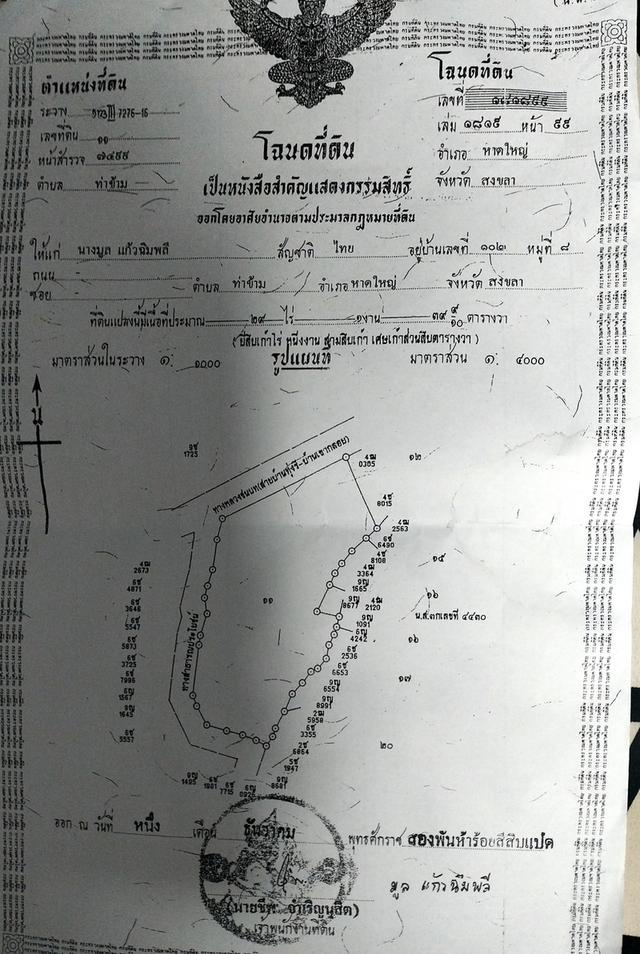 ตำแหน่งที่ดิน
ระวาง 5123 III 7276-16
เลขที่ดิน ๑๑
หน้าสำรวจ ๗๔๙๙
ตำบล ท่าข้าม
โฉนดที่ดิน
เลขที่ ๑๘๑๘๙๙
เล่ม ๑๘๑๙ หน้า ๙๙
อำเภอ หาดใหญ่
จังหวัด สงขลา
โฉนดที่ดิน
เป็นหนังสือสำคัญแสดงกรรมสิทธิ์
ออกโดยอาศัยอำนาจตามประมวลกฎหมายที่ดิน
ให้แก่ นางมูล แก้วฉิมพลี สัญชาติ ไทย อยู่บ้านเลขที่ ๑๐๒ หมู่ที่ ๘
ถนน -
ซอย - ตำบล ท่าข้าม อำเภอ หาดใหญ่ จังหวัด สงขลา
ที่ดินแปลงนี้มีเนื้อที่ประมาณ ๒๙ ไร่ ๑ งาน ๓๙ ๙/๑๐ ตารางวา
(ยี่สิบเก้าไร่ หนึ่งงาน สามสิบเก้า เศษเก้าส่วนสิบตารางวา)
มาตราส่วนในระวาง ๑: ๑๐๐๐ รูปแผนที่ มาตราส่วน ๑: ๔๐๐๐
น
9ช
1725
ทางหลวงชนบท(สายบ้านทุ่งรี-บ้านเขากลอย)
4ฒ
0385
๑๒
4ช
8015
4ฒ
2563
6ช
6490
4ช
8108
๑๕
4ฒ
3364
9ญ
1665
๑๖
9ญ
8677
4ฒ
2120
น.ส.๓ก เลขที่ ๔๔๓๐
9ญ
1091
6ญ
4242
๑๖
6ช
2536
6ช
6653
๑๗
9ญ
6554
9ญ
8991
2ฒ
5958
6ช
3355
๒๐
2ช
6864
5ช
1947
4ฒ
2673
6ช
4871
6ช
3646
6ช
5547
6ช
5873
6ช
3725
6ช
7996
6ญ
1567
9ญ
1645
6ช
5557
๑๑
ทางสาธารณประโยชน์
9ญ
1495
6ช
1901
6ช
7715
6ญ
9ญ
8681
ออก ณ วันที่ หนึ่ง เดือน ธันวาคม พุทธศักราช สองพันห้าร้อยสี่สิบแปด
มูล แก้วฉิมพลี
เจ้าพนักงานที่ดิน